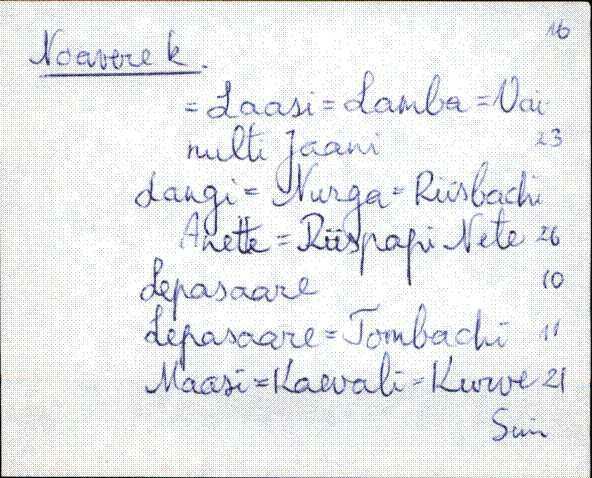 16
Noavere k.
= Laasi = Lamba = Vai-
nulti Jaani 23
Langi = Nurga = Riisbachi
Anette = Riispapi Nete 26
Lepasaare 10
Lepasaare = Tombachi 11
Maasi = Kaevali = Kurve 21